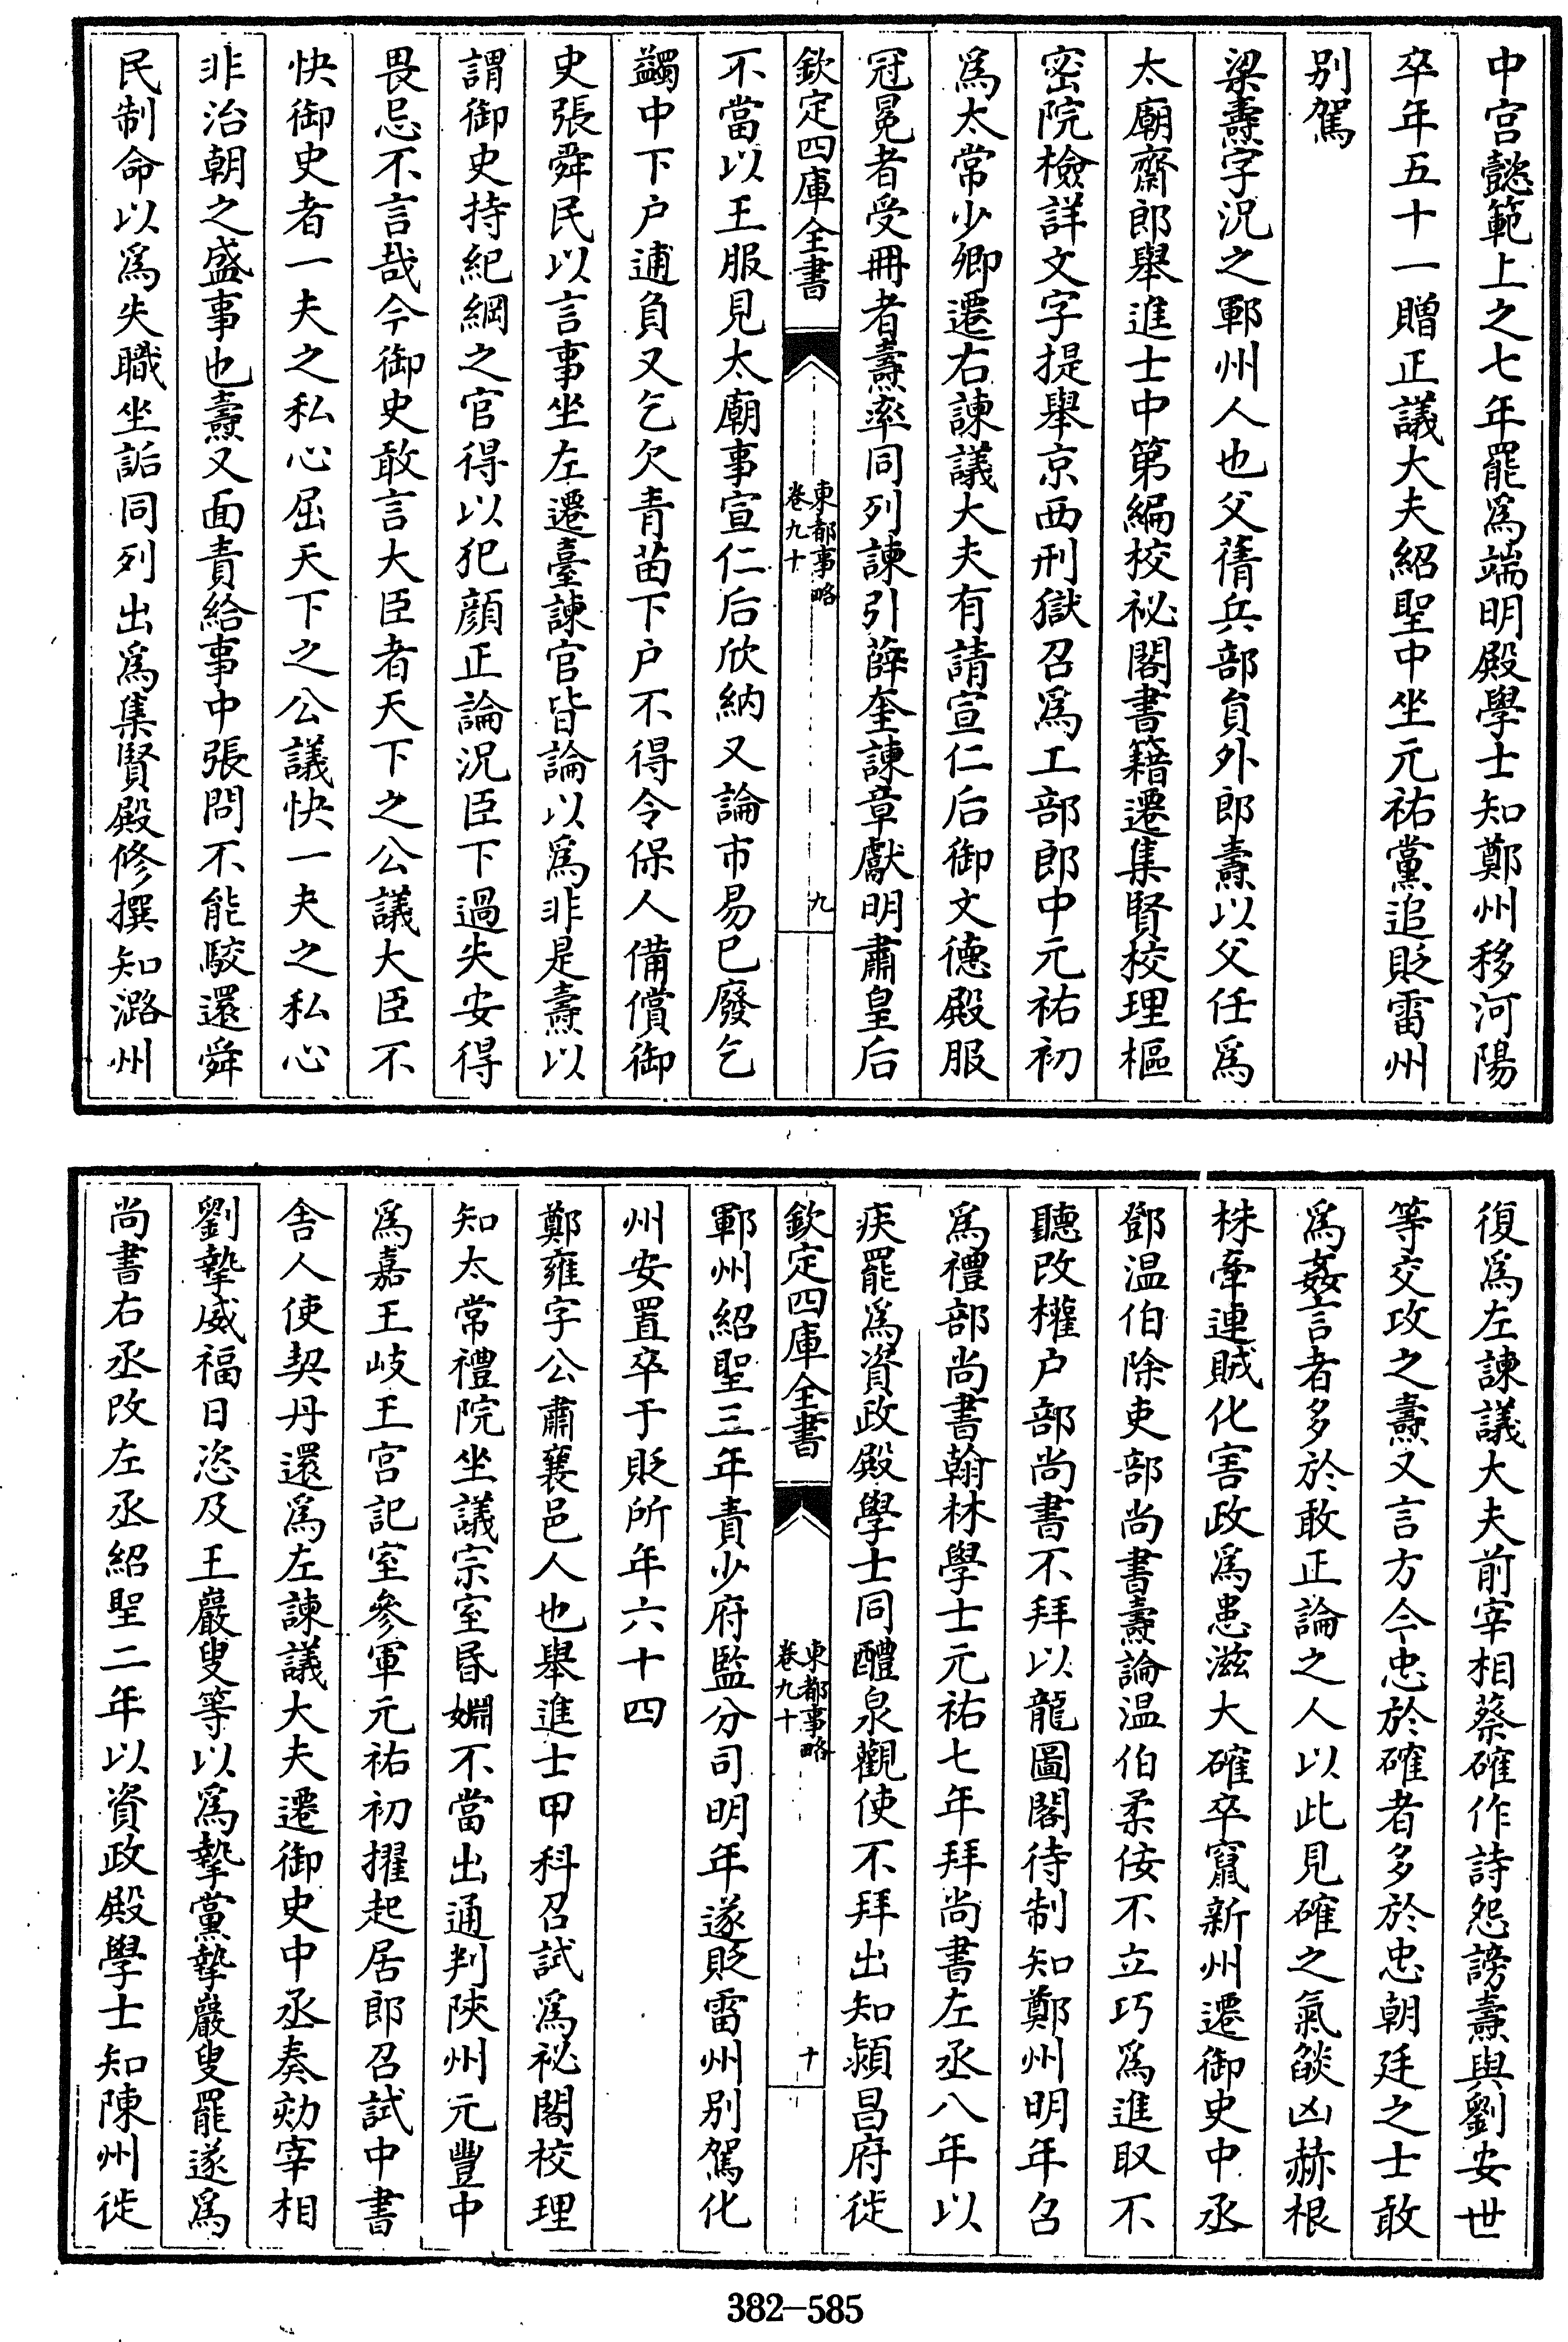 中宫懿範上之七年罷爲端明殿學士知鄭州移河陽
卒年五十一贈正議大夫紹聖中坐元祐黨追貶雷州
别駕
梁燾字况之鄆州人也父蒨兵部員外郎燾以父任爲
太廟齋郎舉進士中第編校祕閣書籍遷集賢校理樞
密院檢詳文字提舉京西刑獄召爲工部郎中元祐初
爲太常少卿遷右諫議大夫有請宣仁后御文德殿服
冠冕者受冊者燾率同列諫引薛奎諫章獻明肅皇后
欽定四庫全書
東都事略
卷九十
九
不當以王服見太廟事宣仁后欣納又論市易已廢乞
蠲中下户逋負又乞欠青苗下户不得令保人備償御
史張舜民以言事坐左遷臺諫官皆論以爲非是燾以
謂御史持紀綱之官得以犯顔正論況臣下過失安得
畏忌不言哉今御史敢言大臣者天下之公議大臣不
快御史者一夫之私心屈天下之公議快一夫之私心
非治朝之盛事也燾又面責給事中張問不能駮還舜
民制命以爲失職坐詬同列出爲集賢殿修撰知潞州
復爲左諫議大夫前宰相蔡確作詩怨謗燾與劉安世
等交攻之燾又言方今忠於確者多於忠朝廷之士敢
爲姦言者多於敢正論之人以此見確之氣燄凶赫根
株牽連賊化害政爲患滋大確卒竄新州遷御史中丞
鄧温伯除吏部尚書燾論温伯柔佞不立巧爲進取不
聽改權户部尚書不拜以龍圖閣待制知鄭州明年召
爲禮部尚書翰林學士元祐七年拜尚書左丞八年以
疾罷爲資政殿學士同醴泉觀使不拜出知潁昌府徙
欽定四庫全書
東都事略
卷九十
十
鄆州紹聖三年責少府監分司明年遂貶雷州别駕化
州安置卒于貶所年六十四
鄭雍字公肅襄邑人也舉進士甲科召試爲祕閣校理
知太常禮院坐議宗室昏婣不當出通判陜州元豐中
爲嘉王岐王宫記室參軍元祐初擢起居郎召試中書
舍人使契丹還爲左諫議大夫遷御史中丞奏劾宰相
劉摯威福日恣及王巖叟等以爲摯黨摯巖叟罷遂爲
尚書右丞改左丞紹聖二年以資政殿學士知陳州徙
382-585